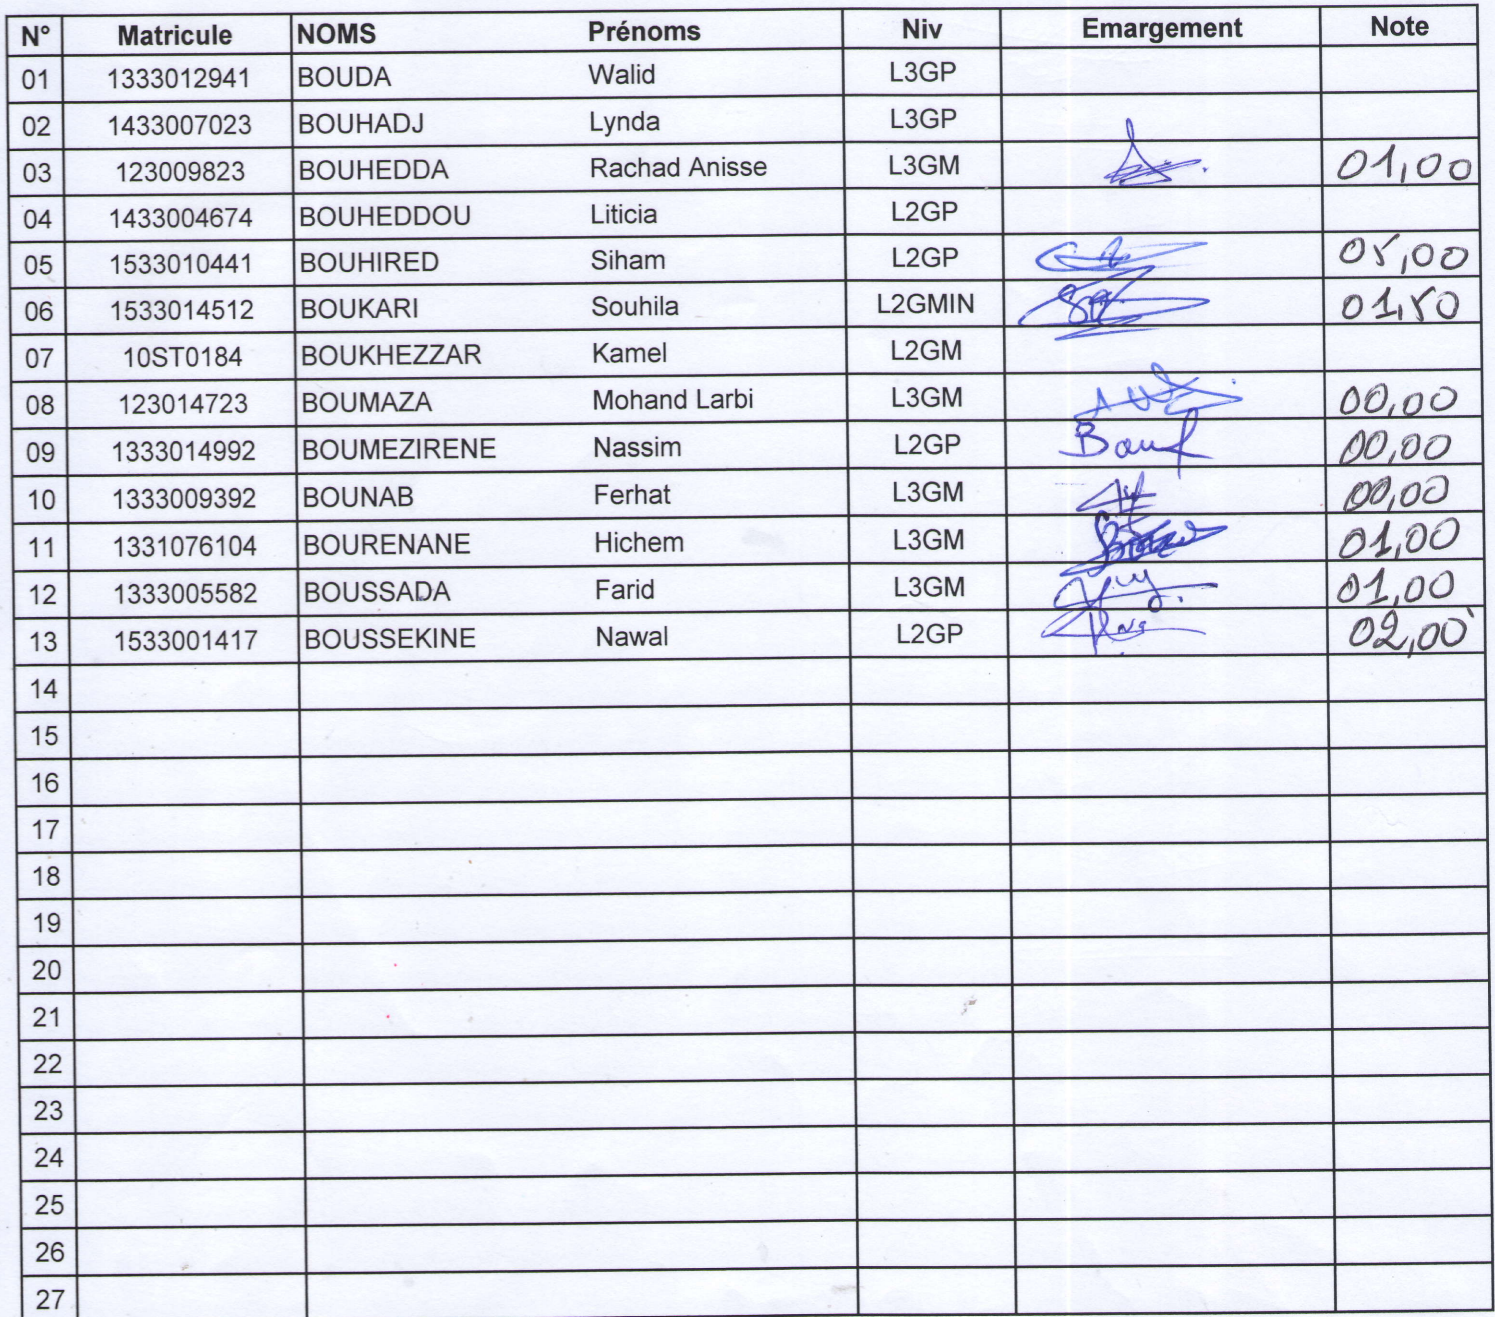 N° Matricule NOMS Prénoms Niv Emargement Note
01 1333012941 BOUDA Walid L3GP
02 1433007023 BOUHADJ Lynda L3GP
03 123009823 BOUHEDDA Rachad Anisse L3GM 01,00
04 1433004674 BOUHEDDOU Liticia L2GP
05 1533010441 BOUHIRED Siham L2GP 05,00
06 1533014512 BOUKARI Souhila L2GMIN 01,50
07 10ST0184 BOUKHEZZAR Kamel L2GM
08 123014723 BOUMAZA Mohand Larbi L3GM 00,00
09 1333014992 BOUMEZIRENE Nassim L2GP 00,00
10 1333009392 BOUNAB Ferhat L3GM 00,00
11 1331076104 BOURENANE Hichem L3GM 01,00
12 1333005582 BOUSSADA Farid L3GM 01,00
13 1533001417 BOUSSEKINE Nawal L2GP 02,00
14
15
16
17
18
19
20
21
22
23
24
25
26
27